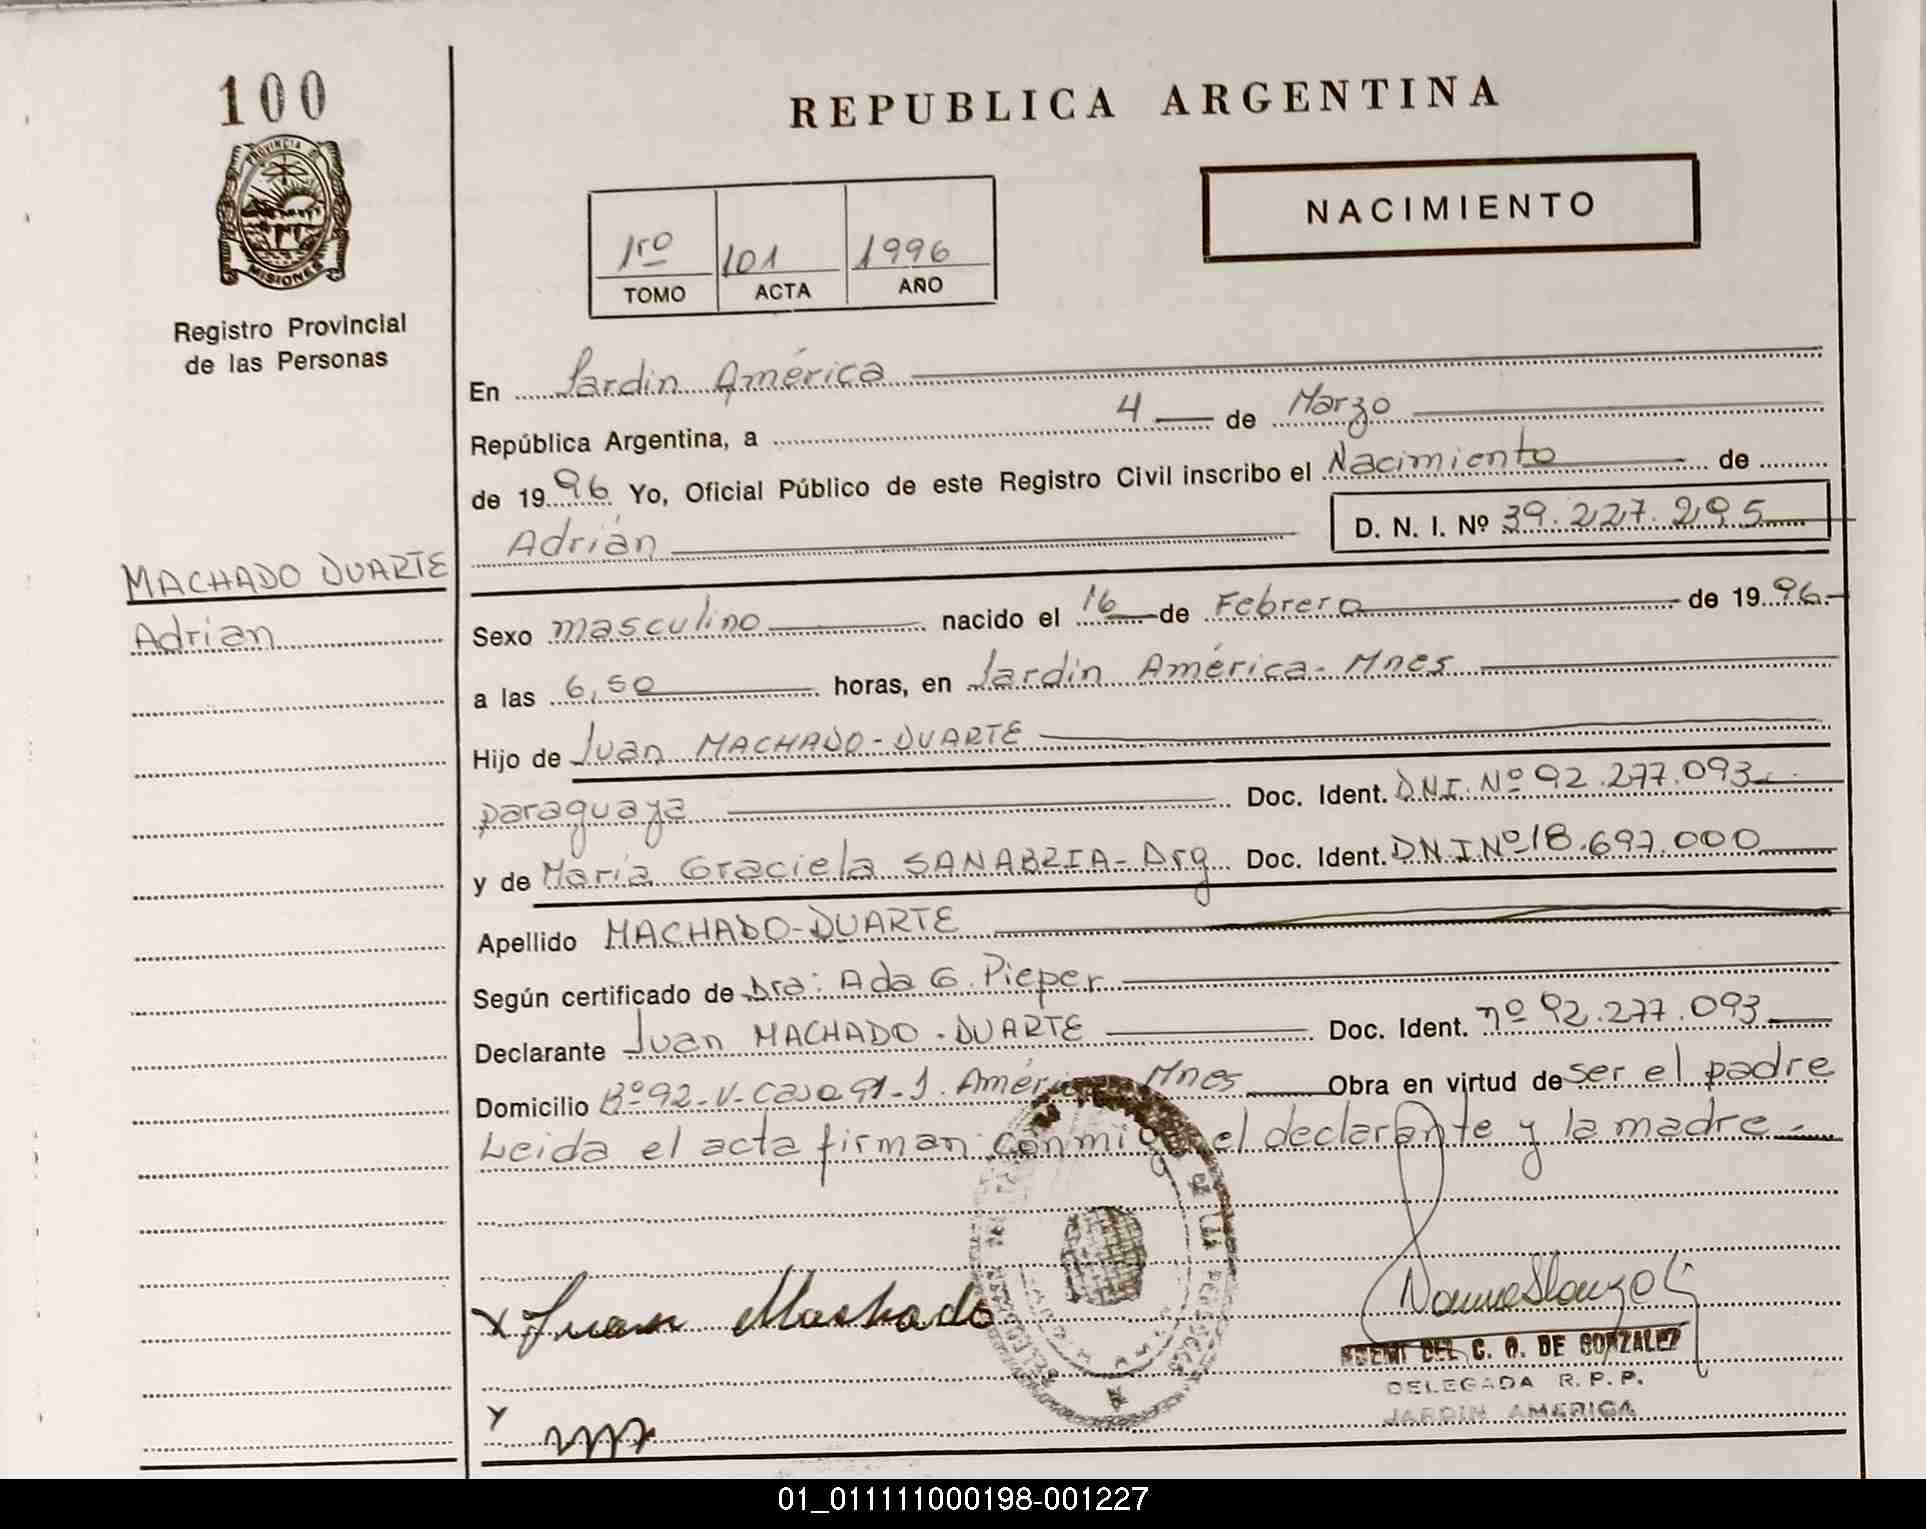 100
PROVINCIA DE
MISIONES
Registro Provincial
de las Personas
REPUBLICA ARGENTINA
NACIMIENTO
1ro 101 1996
TOMO ACTA AÑO
En Jardín América
República Argentina, a 4 de Marzo
de 1996 Yo, Oficial Público de este Registro Civil inscribo el Nacimiento de
Adrián D. N. I. Nº 39.227.295
MACHADO DUARTE
Adrian
Sexo masculino nacido el 16 de Febrero de 1996.-
a las 6,50 horas, en Jardín América - Mnes
Hijo de Juan MACHADO-DUARTE
paraguaya Doc. Ident. DNI. Nº 92.277.093
y de María Graciela SANABRIA - Arg Doc. Ident. DNI Nº 18.697.000
Apellido MACHADO-DUARTE
Según certificado de Dra: Ada G. Pieper
Declarante Juan MACHADO-DUARTE Doc. Ident. nº 92.277.093
Domicilio Bº 92-V-Casa 91-J. América Mnes Obra en virtud de ser el padre
Leida el acta firman conmigo el declarante y la madre.-
x Juan Machado
C. O. DE GONZALEZ
DELEGADA R. P. P.
JARDIN AMERICA
01_011111000198-001227